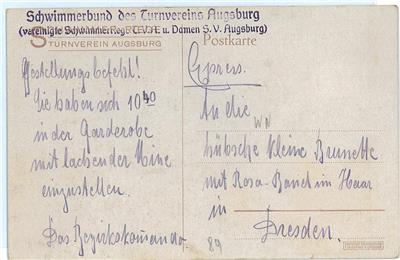 Schwimmerbund des Turnvereins Augsburg
(vereinigte Schwimmer-Reg. T.V.A. u. Damen S. V. Augsburg)
TURNVEREIN AUGSBURG
Postkarte
Gestellungsbefehl!
Sie haben sich 10 40
in der Garderobe
mit lachender Mine
einzustellen.
Das Bezirkskomando.
Express.
An die
hübsche kleine Brunette
mit Rosa-Band im Haar
in
Dresden.
WN
89